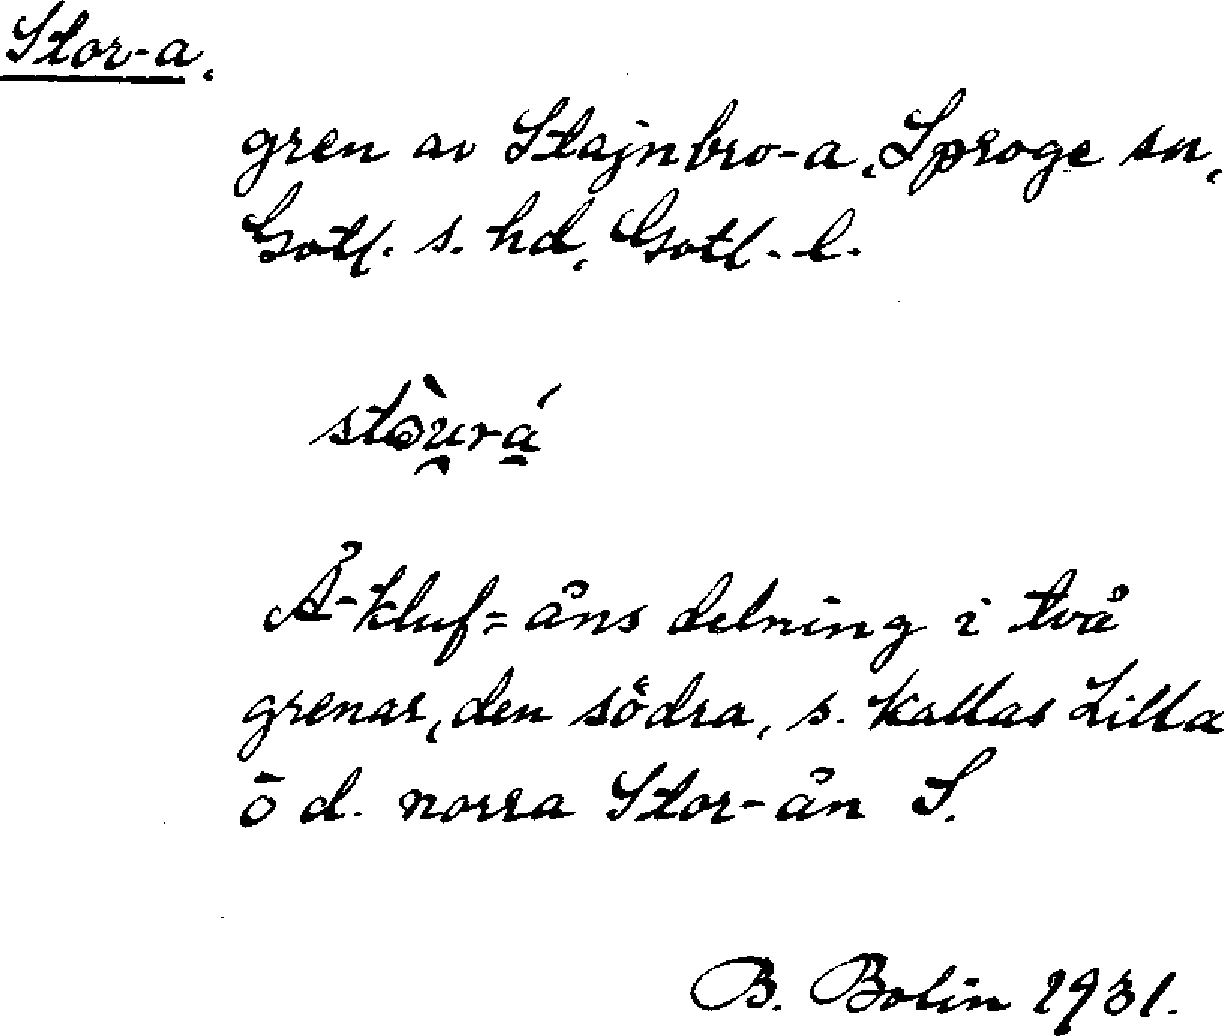 Stor-a,
gren av Stajnbro-a, Sproge sn,
Gotl. s. hd, Gotl. l.
stòu̯rá̱
Å-kluf = åns delning i två
grenar, den södra, s. kallas Lilla
ō d. norra Stor-ån S.
B. Bolin 1931.